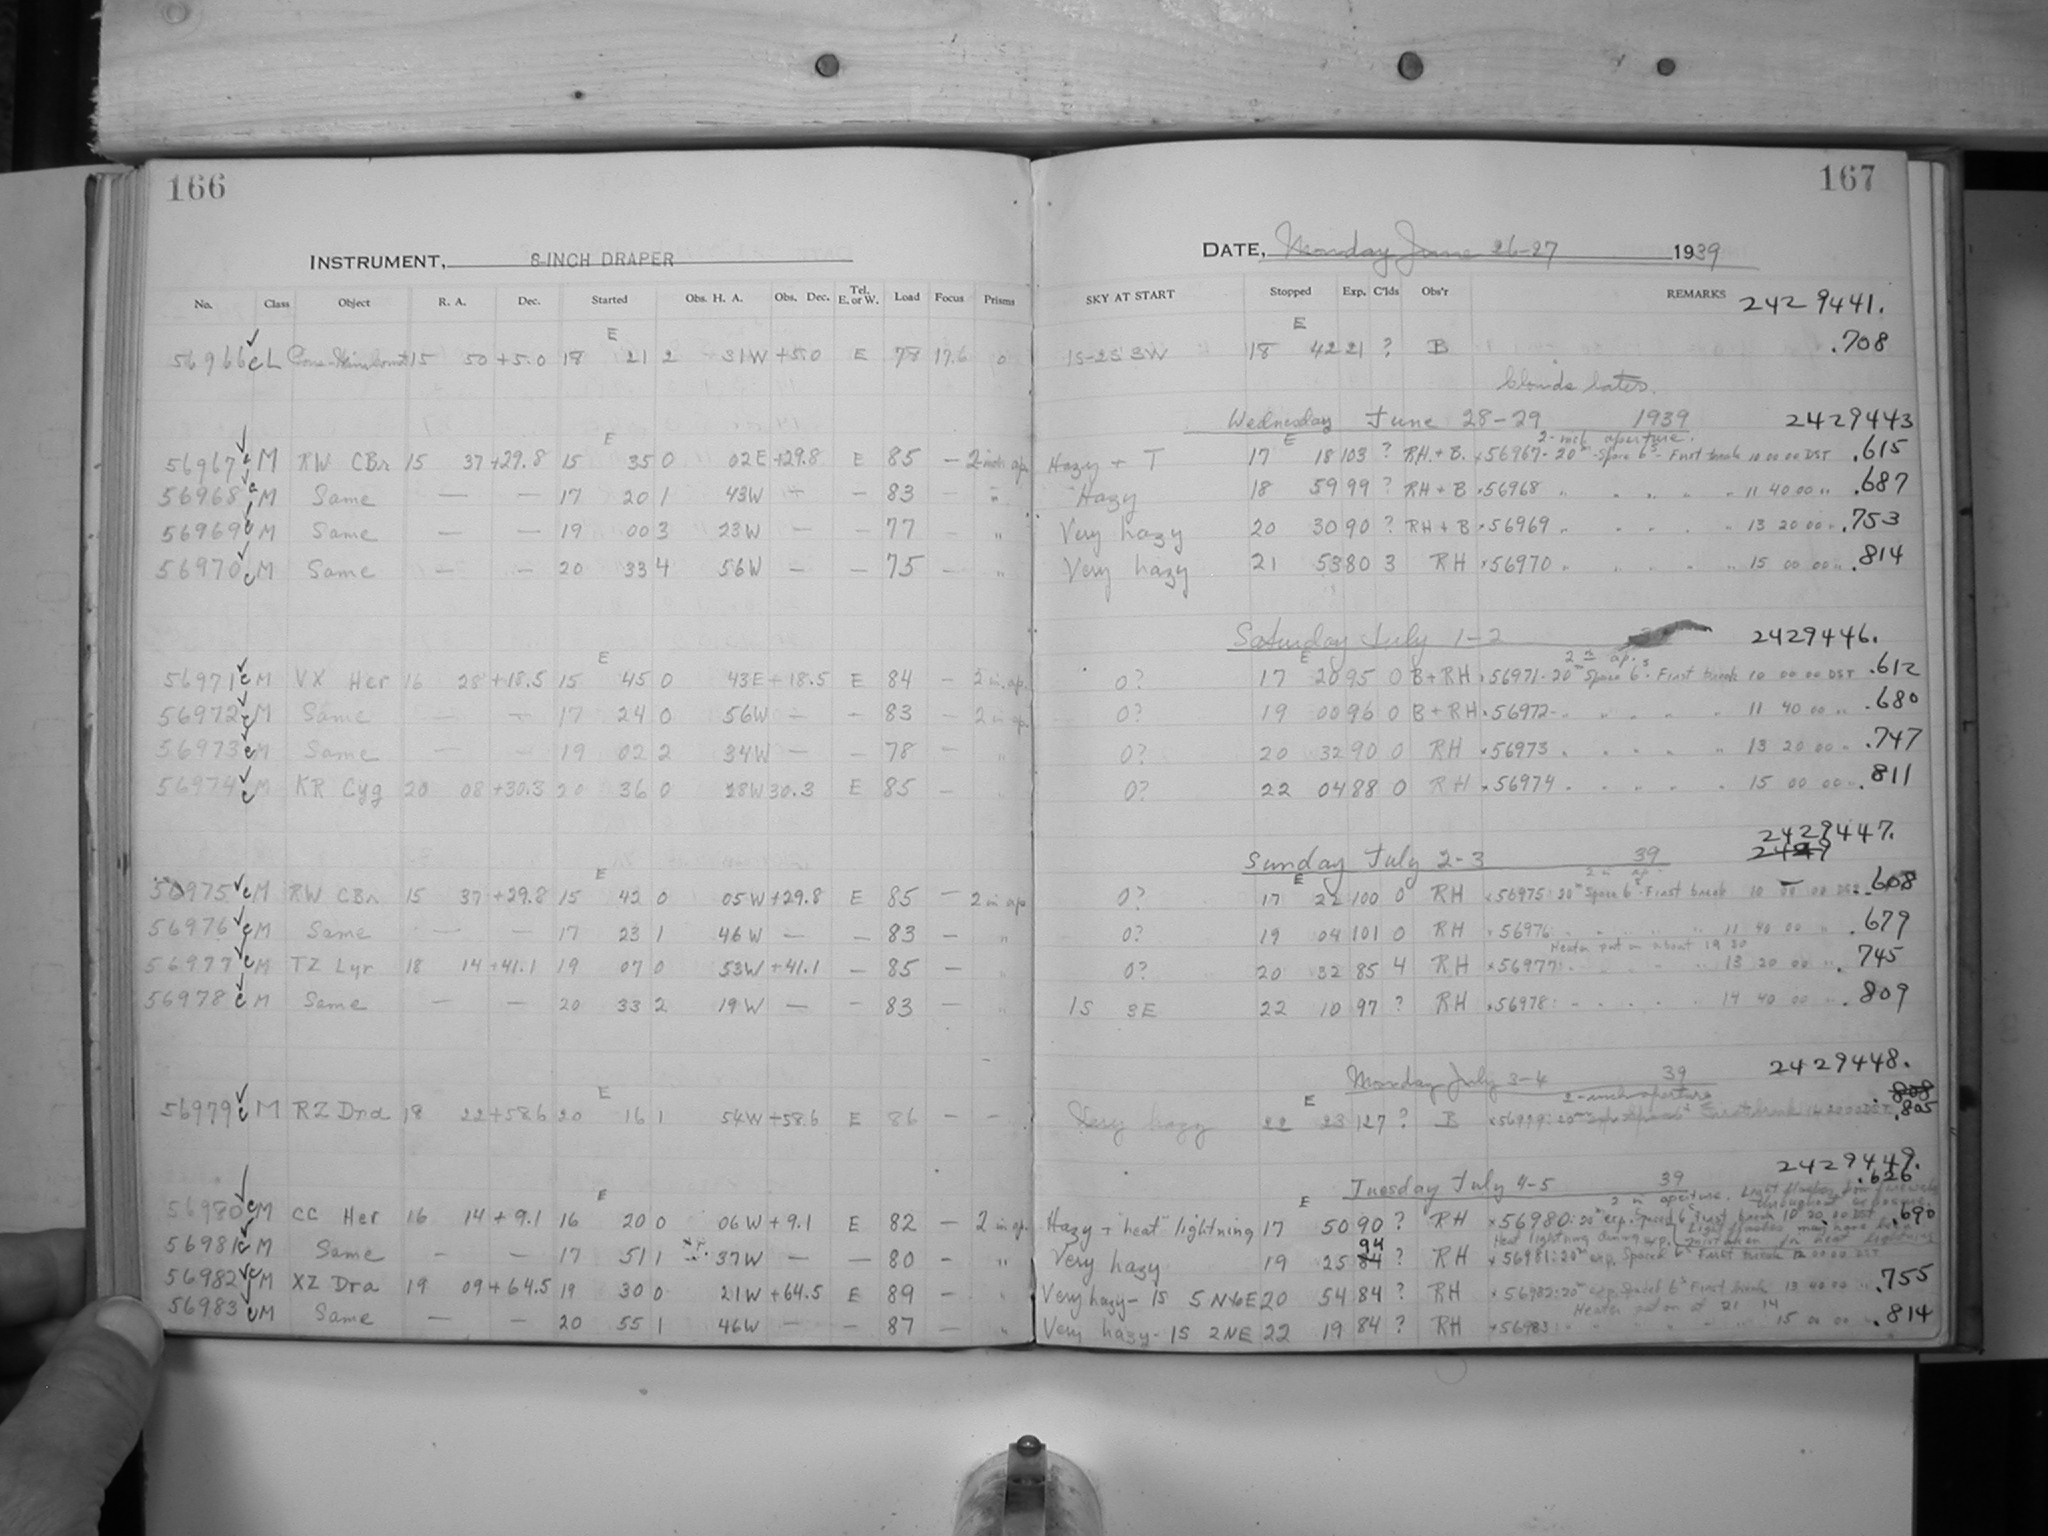 166
INSTRUMENT, 8-INCH DRAPER
No. Class Object R. A. Dec. Started Obs. H. A. Obs. Dec. Tel. E. or W. Load Focus Prisms
E
56966 L 15 50 +5.0 18 21 2 31W +5.0 E 78 17.6 0
E
56967 M RW CBr 15 37 +29.8 15 35 0 02E +29.8 E 85 — 2-inch ap.
56968 M Same — — 17 20 1 43W — — 83 — "
56969 M Same — — 19 00 3 23W — — 77 — "
56970 M Same — — 20 33 4 56W — — 75 — "
E
56971 M VX Her 16 28 +18.5 15 45 0 43E +18.5 E 84 — 2 in. ap.
56972 M Same — — 17 24 0 56W — — 83 — 2 in ap.
56973 M Same — — 19 02 2 34W — — 78 — "
56974 M KR Cyg 20 08 +30.3 20 36 0 28W 30.3 E 85 — "
E
56975 M RW CBr 15 37 +29.8 15 42 0 05W +29.8 E 85 — 2 in ap
56976 M Same — — 17 23 1 46W — — 83 — "
56977 M TZ Lyr 18 14 +41.1 19 07 0 53W +41.1 — 85 — "
56978 M Same — — 20 33 2 19W — — 83 — "
E
56979 M RZ Dra 18 22 +58.6 20 16 1 54W +58.6 E 86 — —
E
56980 M CC Her 16 14 +9.1 16 20 0 06W +9.1 E 82 — 2 in ap.
56981 M Same — — 17 51 1 37W — — 80 — "
56982 M XZ Dra 19 09 +64.5 19 30 0 21W +64.5 E 89 — "
56983 M Same — — 20 55 1 46W — — 87 — "
167
DATE, Monday June 26-27 1939
SKY AT START Stopped Exp. C'lds Obs'r REMARKS 2429441.
E
1S-2S 3W 18 42 21 ? B .708
Clouds later.
Wednesday June 28-29 1939 2429443
E 2-inch aperture.
Hazy + T 17 18 103 ? RH. + B. 56967-20m-Space 6s- First break 10 00 00 DST .615
Hazy 18 59 99 ? RH + B 56968 " " " " 11 40 00 " .687
Very hazy 20 30 90 ? RH + B 56969 " " " " 13 20 00 " .753
Very hazy 21 53 80 3 RH 56970 " " " " 15 00 00 " .814
Saturday July 1-2 2429446.
E 2 in ap.
0? 17 20 95 0 B + RH 56971-20m Space 6s- First break 10 00 00 DST .612
0? 19 00 96 0 B + RH 56972- " " " " 11 40 00 " .680
0? 20 32 90 0 RH 56973 " " " " 13 20 00 " .747
0? 22 04 88 0 RH 56974 " " " " 15 00 00 " .811
2429447.
Sunday July 2-3 39
E 2 in ap.
0? 17 22 100 0 RH 56975: 20m Space 6s- First break 10 00 00 DST .608
0? 19 04 101 0 RH 56976: " " " " 11 40 00 " .679
Heater put on about 19 30
0? 20 32 85 4 RH 56977: " " " " 13 20 00 " .745
1S 3E 22 10 97 ? RH 56978: " " " " 14 40 00 " .809
2429448.
Monday July 3-4 39
E 2-inch aperture 808
Very hazy 22 23 127 ? B 56979: 20m First break DST .805
2429449.
Tuesday July 4-5 39 .626
E 2 in aperture. Light flashes from fireworks throughout exposure.
Hazy + "heat" lightning 17 50 90 ? RH 56980: 20m exp. Spaced 6s First break 10 20 00 DST .690
Heat lightning during exp. Light flashes may have been mistaken for heat lightning
94
Very hazy 19 25 84 ? RH 56981: 20m exp. Spaced 6s First break 12 00 00 DST
Very hazy- 1S 5 N6E 20 54 84 ? RH 56982: 20m exp. Spaced 6s First break 13 40 00 " .755
Heater put on at 21 14
Very hazy- 1S 2NE 22 19 84 ? RH 56983: " " " " 15 00 00 " .814